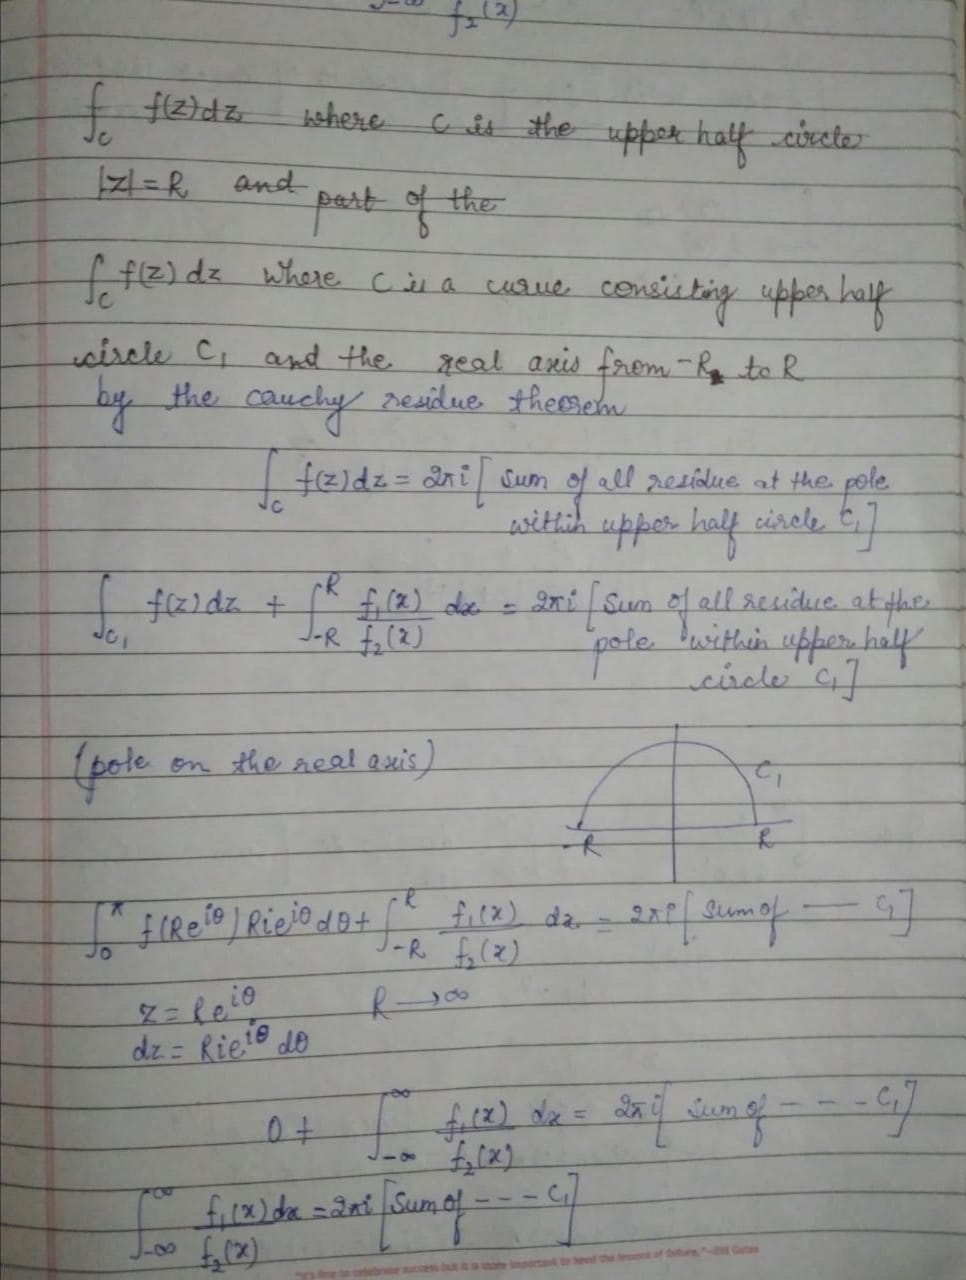 f₂(x)
∫_C f(z)dz where C is the upper half circle
|z|=R and part of the
∫_C f(z) dz where C is a curve consisting upper half
circle C₁ and the real axis from -R to R
by the cauchy residue theorem
∫_C f(z)dz = 2πi [ sum of all residue at the pole
within upper half circle C₁]
∫_C₁ f(z)dz + ∫_-R^R f₁(x)/f₂(x) dx = 2πi [Sum of all residue at the
pole within upper half
circle C₁]
(pole on the real axis)
C₁
-R R
∫_0^π f(Re^iθ) Rie^iθ dθ + ∫_-R^R f₁(x)/f₂(x) dx = 2πi [ sum of — C₁]
z = Re^iθ R → ∞
dz = Rie^iθ dθ
0 + ∫_-∞^∞ f₁(x)/f₂(x) dx = 2πi [ sum of - - - C₁]
∫_-∞^∞ f₁(x)/f₂(x) dx = 2πi [Sum of - - - C₁]
"It's fine to celebrate success but it is more important to heed the lessons of failure." -Bill Gates